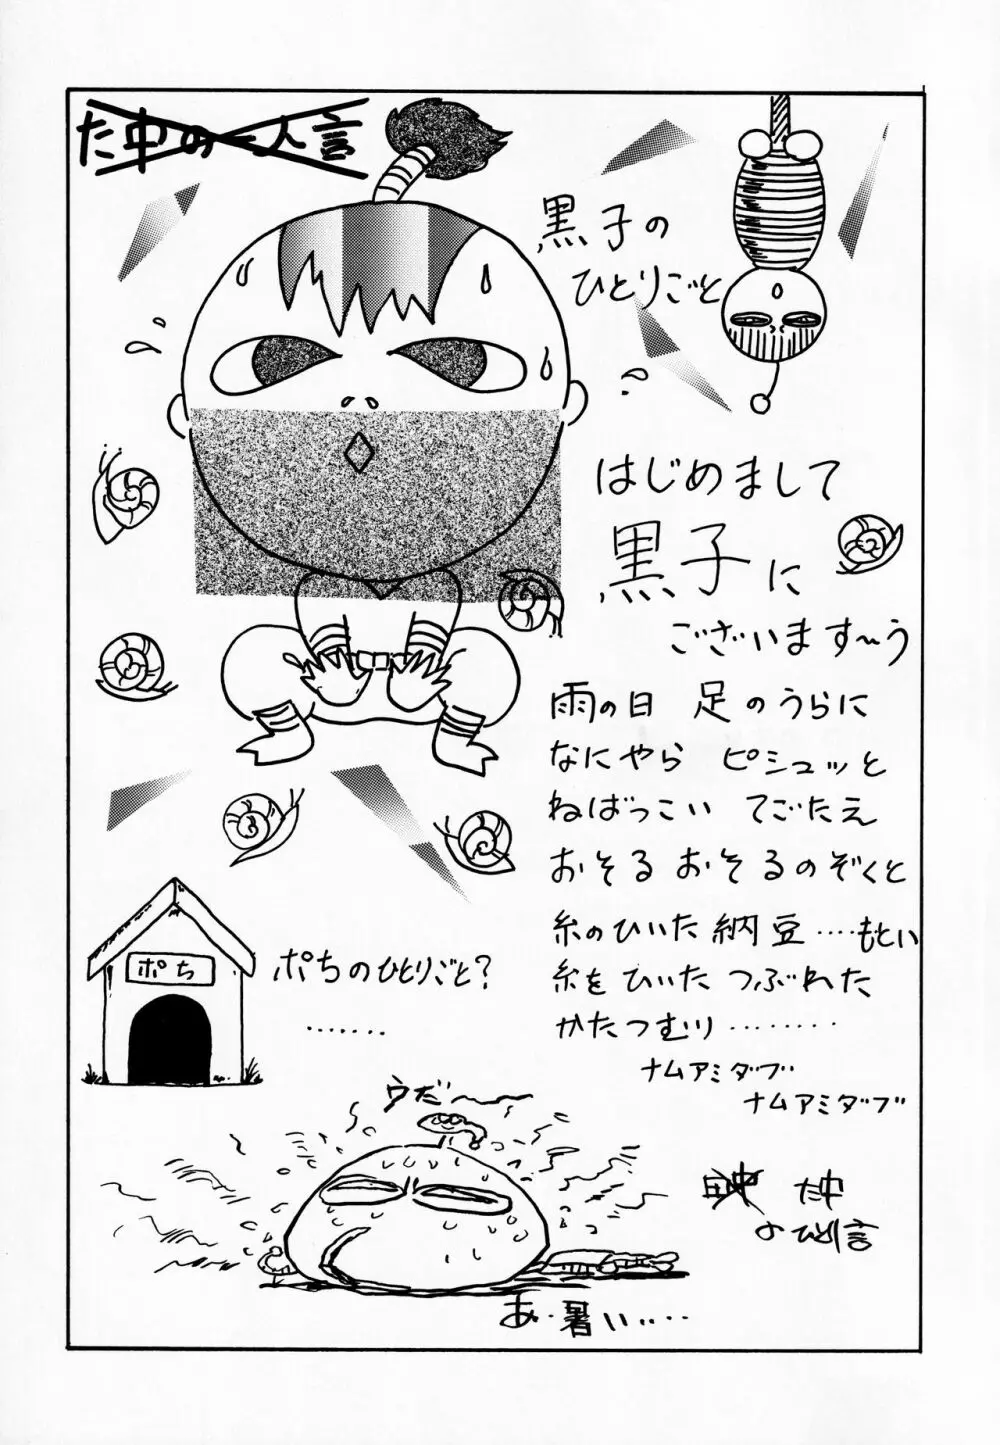 た中の一人言
黒子の
ひとりごと
はじめまして
黒子に
ございます〜う
雨の日 足のうらに
なにやら ピシュッと
ねばっこい てごたえ
おそるおそるのぞくと
糸のひいた納豆....もとい
糸をひいた つぶれた
かたつむり........
ナムアミダブ
ナムアミダブ
ポち
ポちのひとりごと?
.......
うだ〜
た中
のひとり言
あ..暑い....